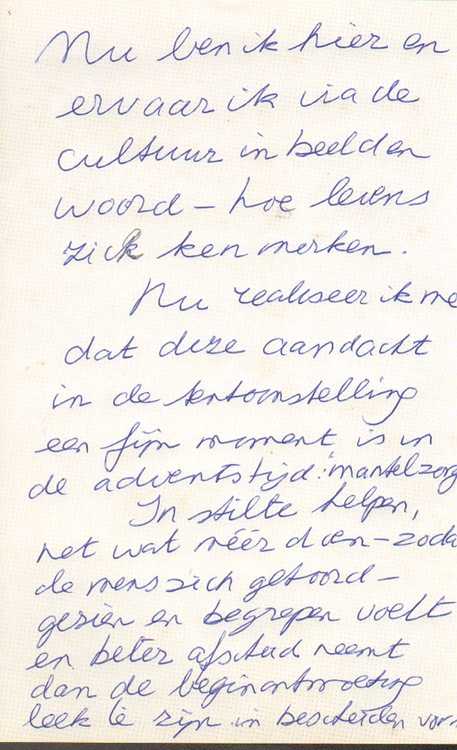 Nu ben ik hier en
ervaar ik via de
cultuur in beeld en
woord – hoe levens
zich kenmerken.
Nu realiseer ik me
dat deze aandacht
in de tentoonstelling
een fijn moment is in
de adventstijd: mantelzorg
In stilte helpen,
net wat méér doen – zoda
de mens zich gehoord –
gezien en begrepen voelt
en beter afscheid neemt
dan de beginontmoeting
leek te zijn in bescheiden